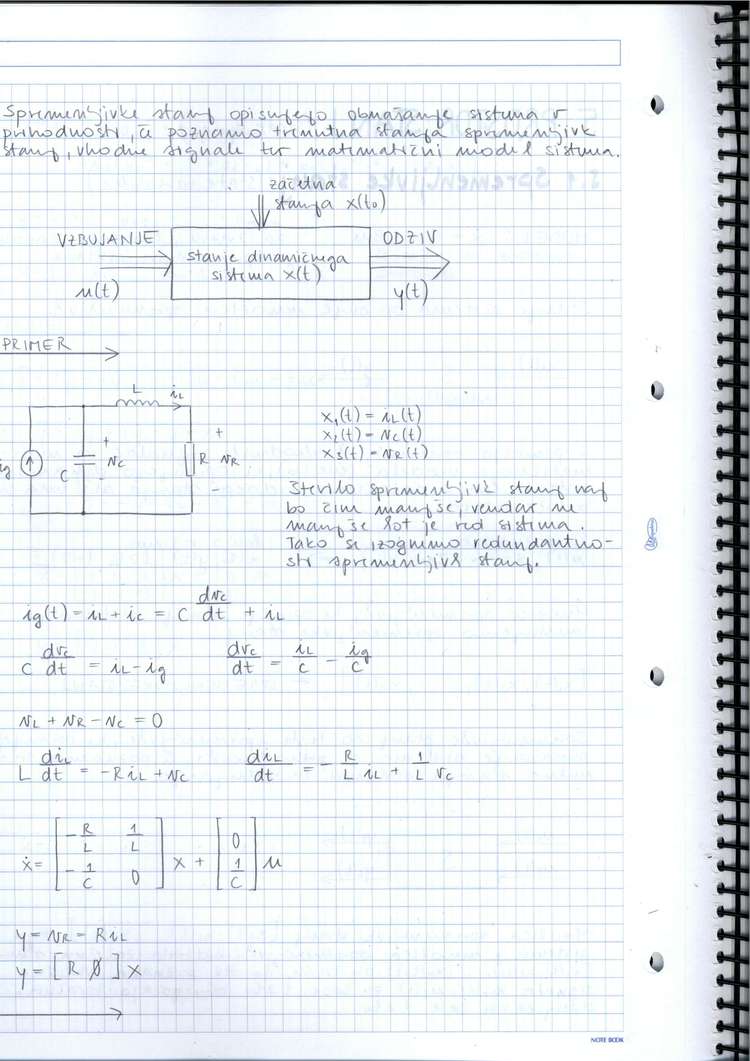 Spremenljivke stanj opisujejo obnašanje sistema v
prihodnosti, če poznamo trenutna stanja spremenljivk
stanj, vhodne signale ter matematični model sistema.
začetna
stanja x(t₀)
VZBUJANJE
u(t)
stanje dinamičnega
sistema x(t)
ODZIV
y(t)
PRIMER
L iL
ig
C
+
vC
-
R
+
vR
-
x₁(t) = iL(t)
x₂(t) = vC(t)
x₃(t) = vR(t)
Število spremenljivk stanj naj
bo čim manjše, vendar ne
manjše kot je red sistema.
Tako se izognimo redundantno-
sti spremenljivk stanj.
ig(t) = iL + iC = C dvC/dt + iL
C dvC/dt = iL - ig dvC/dt = iL/C - ig/C
vL + vR - vC = 0
L diL/dt = -R iL + vC diL/dt = - R/L iL + 1/L vC
ẋ = [ -R/L 1/L ; -1/C 0 ] x + [ 0 ; 1/C ] u
y = vR - R iL
y = [ R 0 ] x
NOTE BOOK